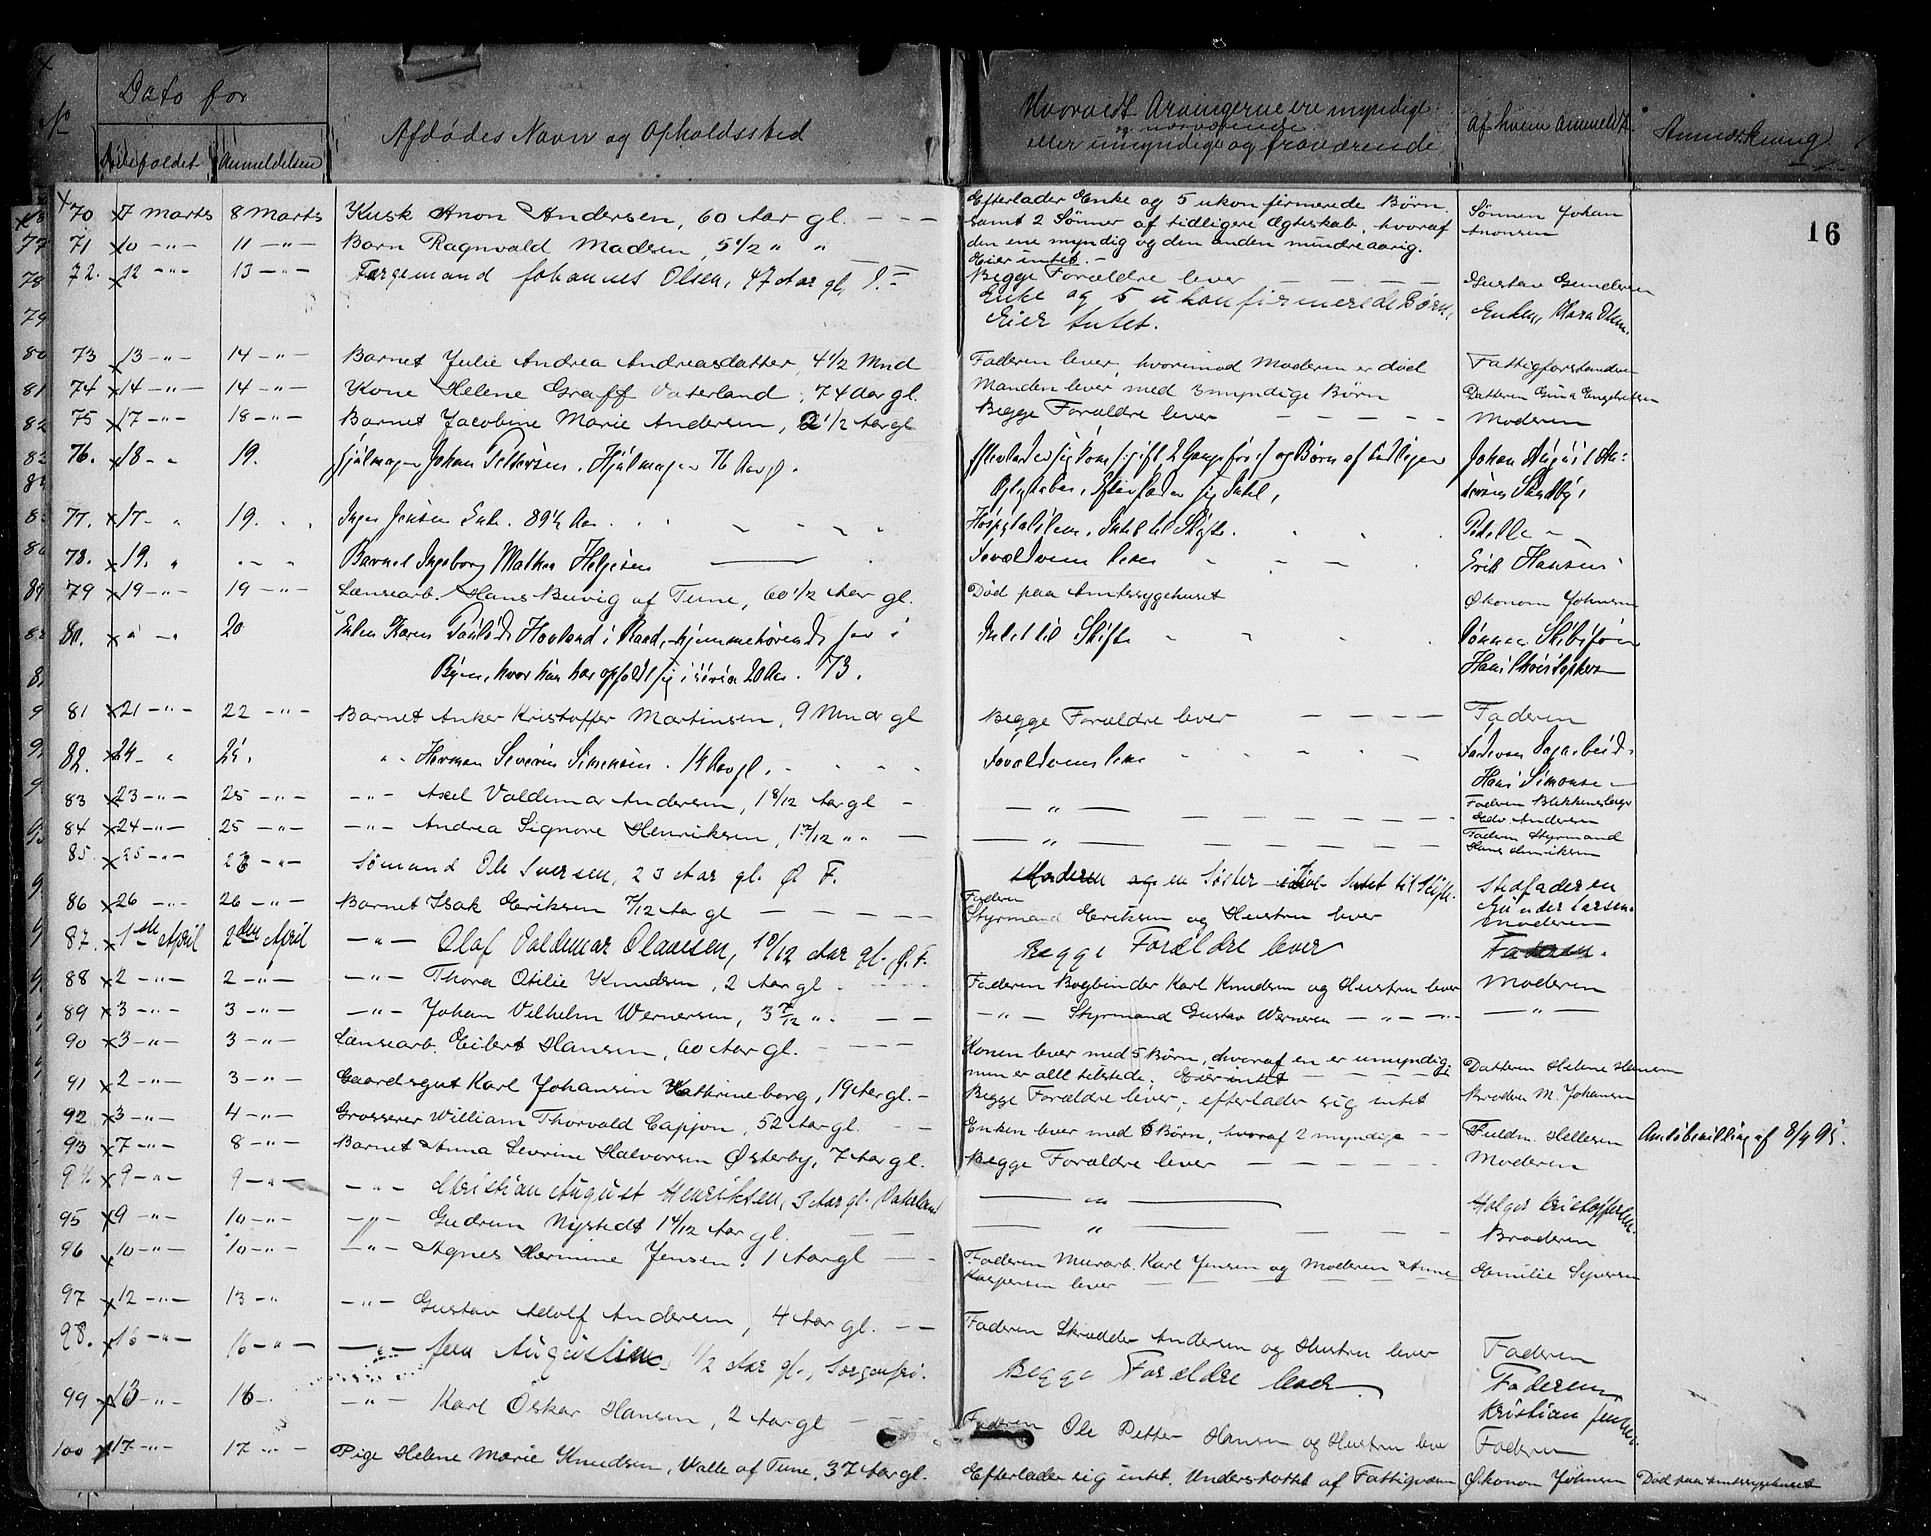 16
No
Dato for
Dødsfaldet
Anmeldelsen
Afdødes Navn og Opholdssted
Hvorvidt Arvingerne ere myndige
og nærværende
eller umyndige og fraværende
af hvem anmeldt
Anmærkning
70 7 Marts 8 Marts Kusk Anon Andersen, 60 Aar gl. Efterlader Enke og 5 ukonfirmerede Børn Sønnen Johan
samt 2 Sønner af tidligere Ægteskab, hvoraf Anonsen
den ene myndig og den anden mindreaarig.
Eier intet.
71 10 -"- 11 -"- Barn Ragnvald Madsen, 5 1/2 " " Begge Forældre lever Gustav Gundersen
72. 12 -"- 13 -"- Færgemand Johannes Olsen, 47 Aar gl. Enke og 5 ukonfirmerede Børn, Enken, Klara Olsen.
Eier Intet.
73 13 -"- 14 -"- Barnet Julie Andrea Andreasdatter, 4 1/2 Mnd Faderen lever, hvorimod Moderen er død Fattigforstanderen
74 14 -"- 14 -"- Kone Helene Graff Vaterland, 74 Aar gl. Manden lever med 3 myndige Børn Datteren Gina Engebretsen
75 17 -"- 18 -"- Barnet Jacobine Marie Andersen, 2 1/2 Aar gl Begge Forældre lever Moderen
76. 18 - " 19. Hjulmager Johan Pettersen. Hjulmager 76 Aar gl. Efterlader sig Kone (gift 2 Gange før) og Børn af tidligere Johan August An-
Ægteskaber. Efterlader sig Intet, dersen Sandby,
77. 17 - " 19. Inger Jensen Enke. 89 1/2 Aar Hospitalslem. Intet til Skifte. Pedellen
78. 19. " - " - Barnet Ingeborg Mathea Helgesen Forældrene lever Erik Hansen
79 19 -"- 19 -"- Lænsearb. Hans Buvig af Tune, 60 1/2 Aar gl. Død paa Amtssygehuset Økonom Johnsen
80. " - " 20 Enken Karen Hovland i Raad, hjemmehørende her i Intet til Skifte Sønnen Skibsfører
Byen, hvor hun har opholdt sig i circa 20 Aar. 73. Hans Christophersen
81 21 -"- 22 -"- Barnet Anker Kristoffer Martinsen, 9 Mndr gl Begge Forældre lever Faderen
82. 24 - " 25. " - Herman Severin Simensen. 14 Aar gl. Forældrene lever Faderen Dagarbeid.
Hans Simonsen
83 23 -"- 25 -"- -"- Axel Valdemar Andersen, 1 8/12 Aar gl - - " - Faderen Blikkenslager
Edv. Andersen
84 24 -"- 25 -"- -"- Andrea Signore Henriksen, 1 7/12 " " - " - Faderen Styrmand
Hans Henriksen
85. 25 -"- 26 -"- Sømand Ole Iversen, 23 Aar gl. Ø F. Moderen og en Søster Intet til Skifte. Stedfaderen
Gunder Larsen.
86 26 -"- 26 -"- Barnet Isak Eriksen 7/12 Aar gl Faderen
Styrmand Eriksen og Hustru lever Moderen
87. 1ste April 2den April -"- Olaf Valdemar Olausen, 1 10/12 Aar gl. Ø. F. Begge Forældre lever Faderen.
88 2 -"- 2 -"- -"- Thora Otilie Knudsen, 2 Aar gl Faderen Bogbinder Karl Knudsen og Hustru lever Moderen
89 3 -"- 3 -"- -"- Johan Vilhelm Wernersen, 3 7/12 ". -"- Styrmand Gustav Wernersen -"- -"- - " -
90 3 -"- 3 -"- Lænsearb. Eilert Hansen, 60 Aar gl. Konen lever med 5 Børn, hvoraf en er umyndig Datteren Helene Hansen
men er alle tilstede. Eier intet
91 2 -"- 3 -"- Gaardsgut Karl Johansen Kathrineborg, 19 Aar gl. Begge Forældre lever; efterlader sig intet Broderen M. Johansen
92 3 -"- 4 -"- Grosserer William Thorvald Cappon, 52 Aar gl. Enken lever med 6 Børn, hvoraf 2 myndige Fuldm. Hellesen Amtsbevilling af 8/4 95.
93 7 -"- 8 -"- Barnet Anna Sevrine Halvorsen Østerby, 7 Aar gl. Begge Forældre lever Moderen
94 9 -"- 9 -"- -"- Christian August Henriksen, 3 Aar gl. Vaterland - " - Holger Kristoffersen
95 9 -"- 10 -"- -"- Gudrun Nystedt 1 4/12 Aar gl. - " - Broderen
96 10 -"- 10 -"- -"- Agnes Hermine Jensen 1 Aar gl Faderen Murarb. Karl Jensen og Moderen Anne Emilie Syversen
Kaspersen lever
97 12 -"- 13 -" -"- Gustav Adolf Andersen, 4 Aar gl. Faderen Skrædder Andersen og Hustru lever Faderen
98. 16 -"- 16 -"- -"- Jens Augustin 1/2 Aar gl, Sorgenfri. Begge Forældre lever. Faderen
Kristian Jensen.
99 13 -"- 16 -. -"- Karl Oskar Hansen, 2 Aar gl Faderen Ole Petter Hansen og Hustru lever Faderen
100 17 -"- 17 -"- Pige Helene Marie Knudsen, Valle af Tune, 37 Aar gl. Efterlader sig intet. Understøttet af Fattigvæsen Økonom Johnsen Død paa Amtssygehuset